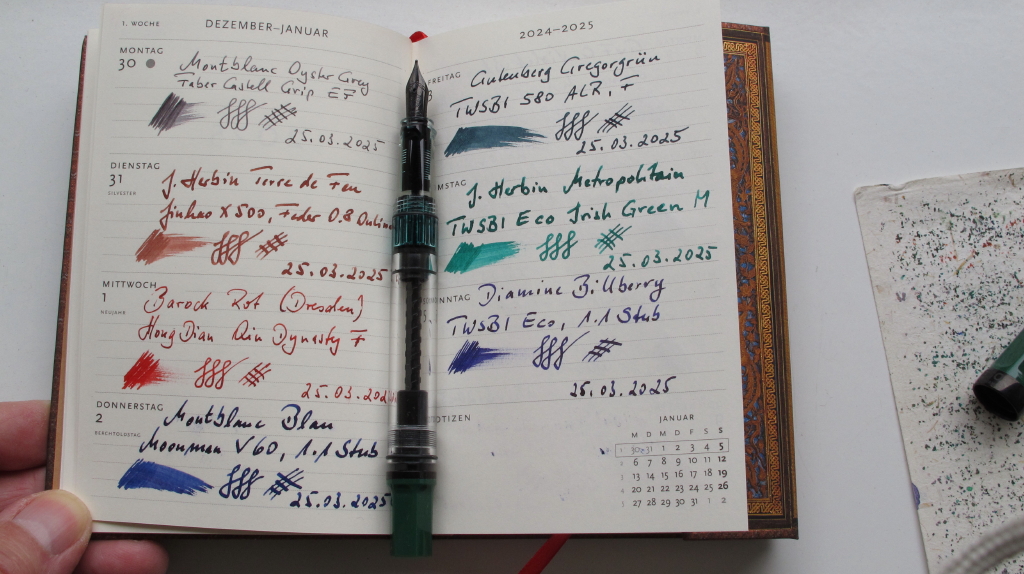 1. WOCHE
DEZEMBER–JANUAR
MONTAG
30
Montblanc Oyster Grey
Faber Castell Grip EF
25.03.2025
DIENSTAG
31
SILVESTER
J. Herbin Terre de Feu
Jinhao X500, Feder 0.8
25.03.2025
MITTWOCH
1
NEUJAHR
Barock Rot (Dresden)
HongDian Qin Dynasty F
25.03.202
DONNERSTAG
2
BERCHTOLDSTAG
Montblanc Blau
Moonman V60, 1.1 Stub
25.03.2025
2024–2025
FREITAG
3
Gutenberg Gregorgrün
TWSBI 580 ALR, F
25.03.2025
MSTAG
J. Herbin Metropolitain
TWSBI Eco Irish Green M
25.03.2025
NNTAG
Diamine Bilberry
TWSBI Eco, 1.1 Stub
25.03.2025
NOTIZEN
JANUAR
M D M D F S S
1 30 31 1 2 3 4 5
2 6 7 8 9 10 11 12
3 13 14 15 16 17 18 19
4 20 21 22 23 24 25 26
5 27 28 29 30 31 1 2